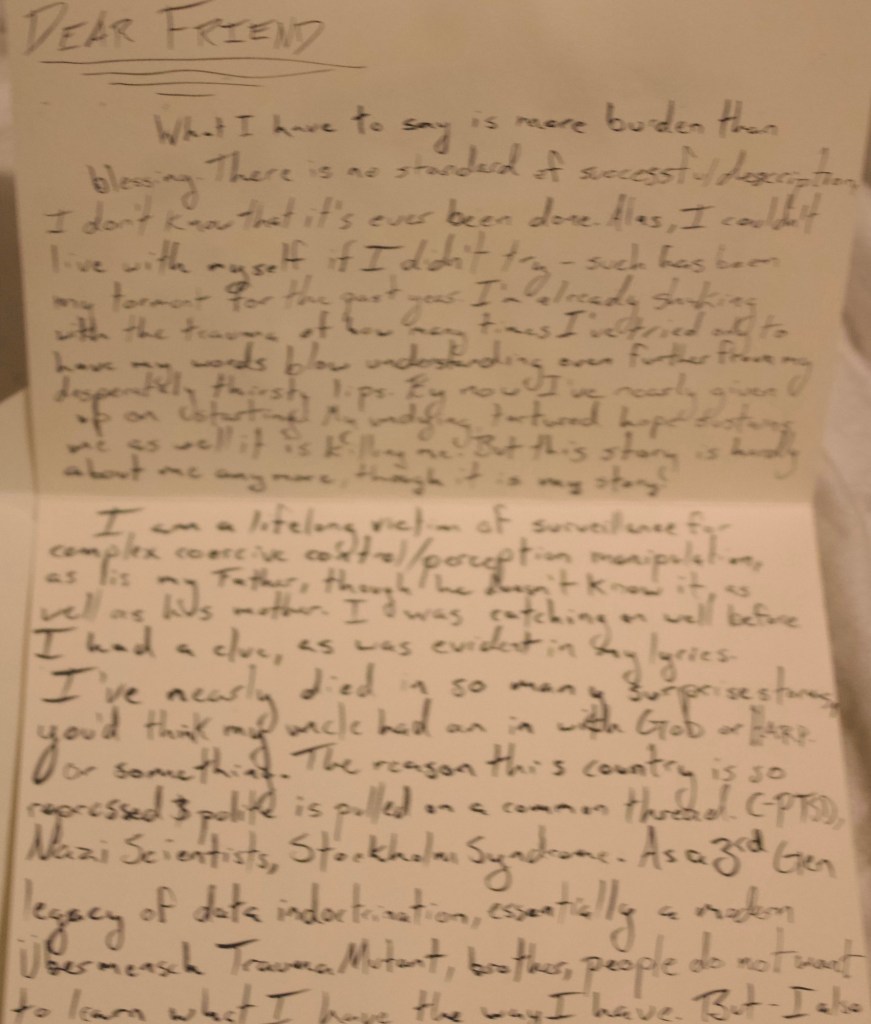 DEAR FRIEND
What I have to say is more burden than
blessing. There is no standard of successful description,
I don't know that it's ever been done. Alas, I couldn't
live with myself if I didn't try – such has been
my torment for the past year. I'm already shaking
with the trauma of how many times I've tried to
have my words blow understanding even further from my
desperately thirsty lips. By now I've nearly given
up on starting. My tortured hope sustains
me as well it is killing me. But this story is hardly
about me anymore, though it is my story.
I am a lifelong victim of surveillance for
complex coercive control/perception manipulation,
as is my Father, though he doesn't know it, as
well as his mother. I was catching on well before
I had a clue, as was evident in my lyrics.
I've nearly died in so many surprise storms,
you'd think my uncle had an in with God or HARP
or something. The reason this country is so
repressed & polite is pulled on a common thread. C-PTSD,
Nazi Scientists, Stockholm Syndrome. As a 3rd Gen
legacy of data indoctrination, essentially a modern
Übermensch Trauma Mutant, brother, people do not want
to learn what I have the way I have. But – I also